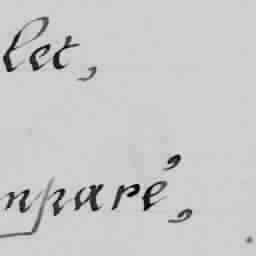 let,
mparé,